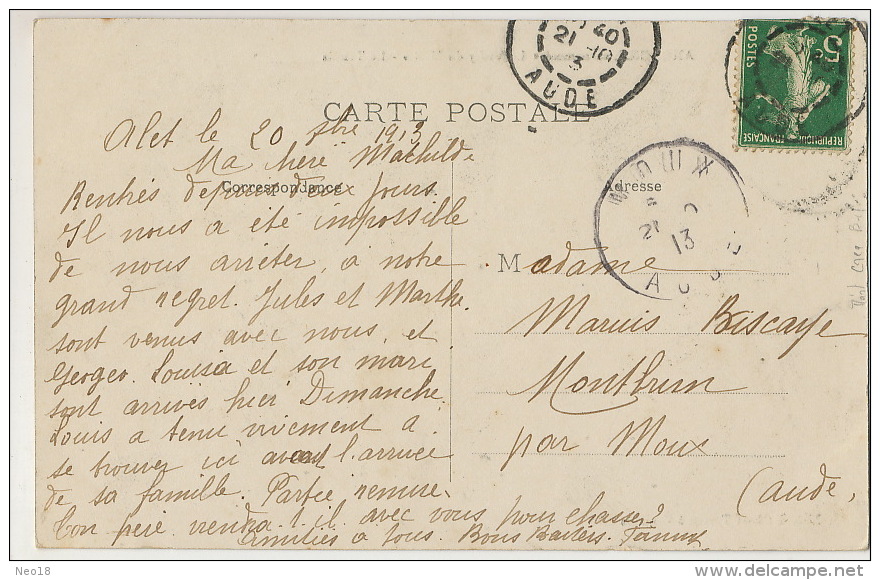 40
21 -10
3
AUDE
5
POSTES
REPUBLIQUE FRANÇAISE
CARTE POSTALE
Correspondance
Adresse
MOUX
21
13
AUDE
Alet le 20 9bre 1913
Ma chère Mathilde
Rentrés depuis deux jours.
Il nous a été impossible
de nous arrêter, à notre
grand regret. Jules et Marthe
sont venus avec nous, et
Georges. Louisa et son mari
sont arrivés hier Dimanche.
Louis a tenu vivement à
se trouver ici avant l'arrivée
de sa famille. Partie remise.
Ton père viendra t'il avec vous pour chasser?
amitiés à tous. Bons Baisers. Fanny
Madame
Marius Biscaye
Montbrun
par Moux
(Aude,
Neo18
www.delcampe.net